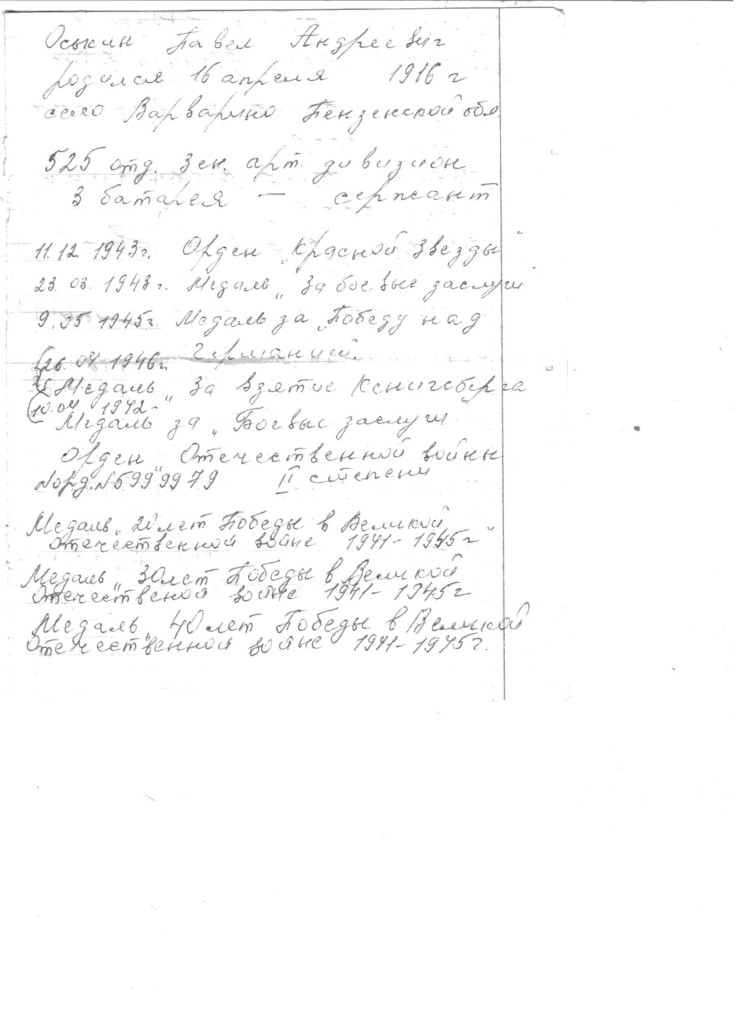 Оськин Павел Андреевич
родился 16 апреля 1916 г
село Варварино Пензенской обл
525 отд зен. арт. дивизион
3 батарея — сержант
11.12 1943г. Орден „Красной Звезды"
23.03.1943г. Медаль „За боевые заслуги"
9.05 1945г. Медаль за „Победу над
Германией.
26.04 1946г.
Медаль „За взятие Кенигсберга"
10.04 1942-
Медаль за „Боевые заслуги"
Орден „Отечественной войны
№орд.№5999979 II степени
Медаль „20 лет Победы в Великой
Отечественной войне 1941-1945г"
Медаль „30лет Победы в Великой
Отечественой войне 1941-1945г
Медаль „40 лет Победы в Великой
Отечественной войне 1941-1945г.